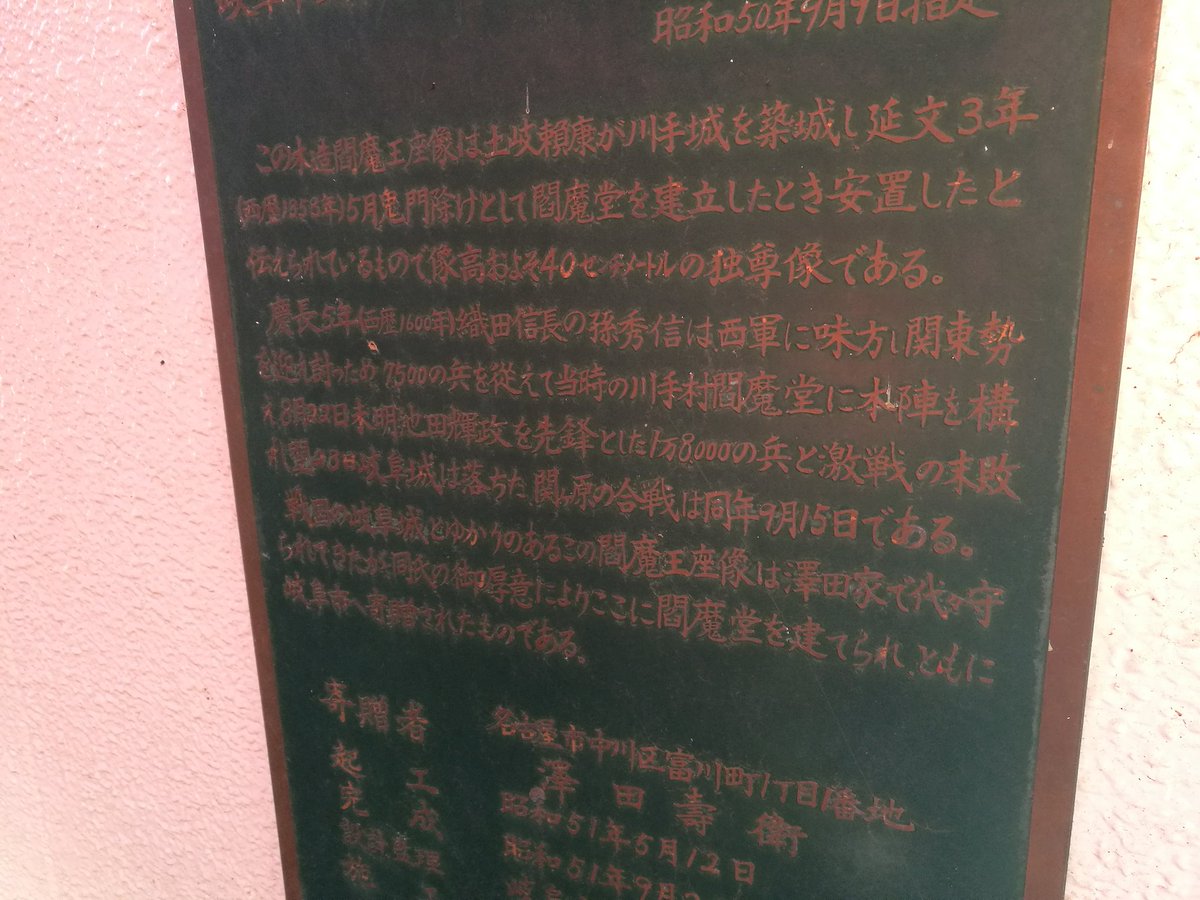 岐阜市
昭和50年9月9日指定
この木造閻魔王座像は土岐頼康が川手城を築城し延文3年
(西歴1358年)5月鬼門除けとして閻魔堂を建立したとき安置したと
伝えられているもので像高およそ40センチメートルの独尊像である。
慶長5年(西歴1600年)織田信長の孫秀信は西軍に味方し関東勢
を迎え討つため7500の兵を従えて当時の川手村閻魔堂に本陣を構
え8月22日未明池田輝政を先鋒とした1万8000の兵と激戦の末敗
れ翌23日岐阜城は落ちた 関ヶ原の合戦は同年9月15日である。
戦国の岐阜城とゆかりのあるこの閻魔王座像は澤田家で代々守
られてきたが同氏の御厚意によりここに閻魔堂を建てられ、ともに
岐阜市へ寄贈されたものである。
寄贈者 名古屋市中川区富川町1丁目1番地
澤田壽衛
起工 昭和51年5月12日
完成 昭和51年9月
管理